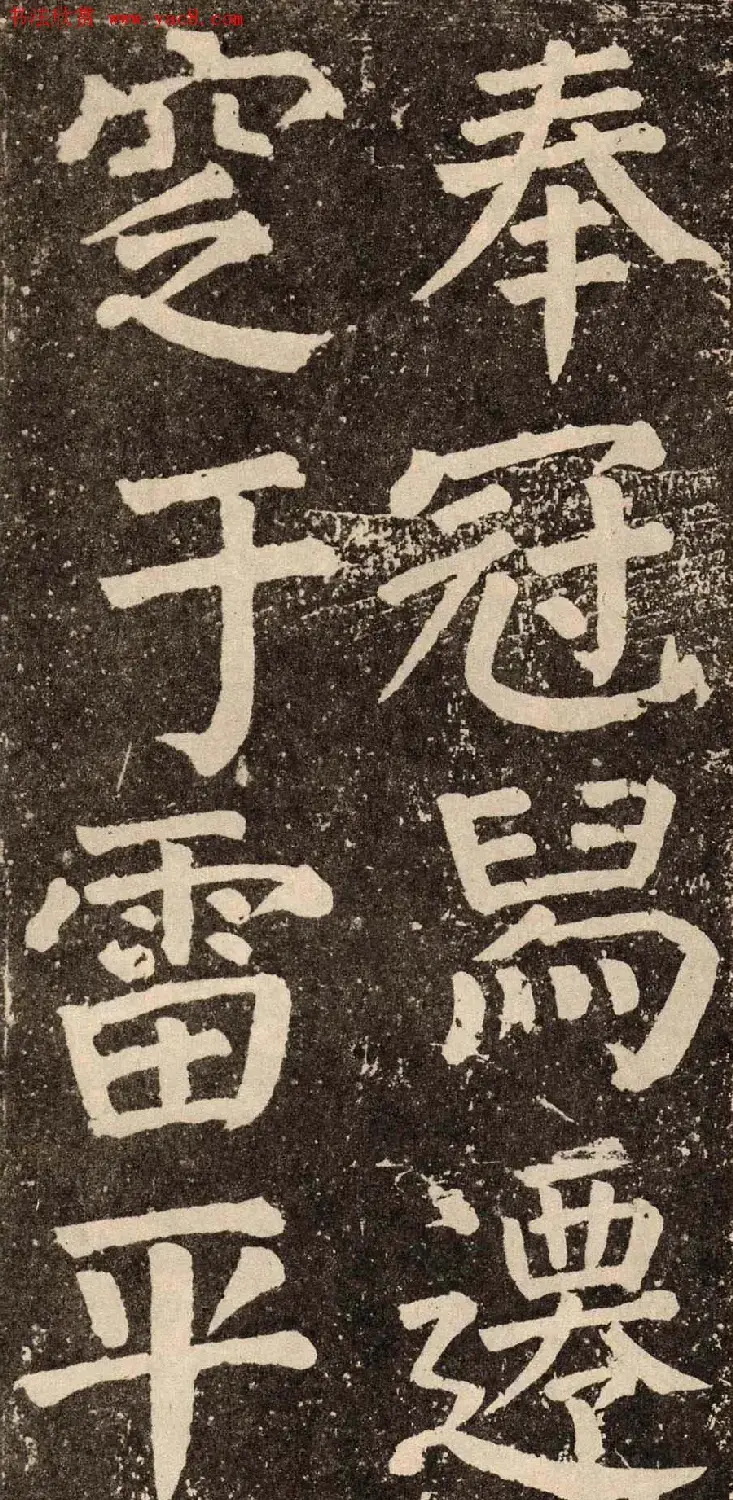 书法欣赏 www.yac8.com
奉冠舄遷
窆于雷平